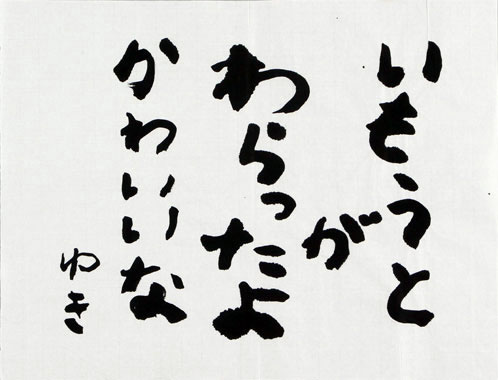 いもうと
が
わらったよ
かわいいな
ゆき